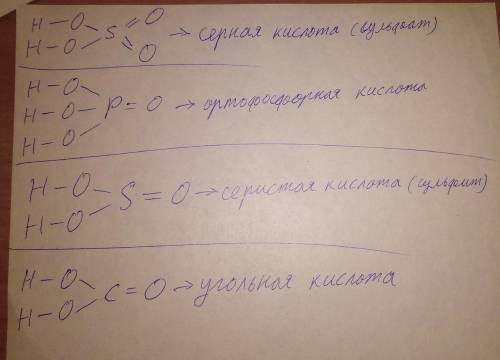 H-O
H-O S=O → серная кислота (сульфат)
=O
H-O
H-O-P=O → ортофосфорная кислота
H-O
H-O
H-O S=O → серистая кислота (сульфит)
H-O
H-O C=O → угольная кислота